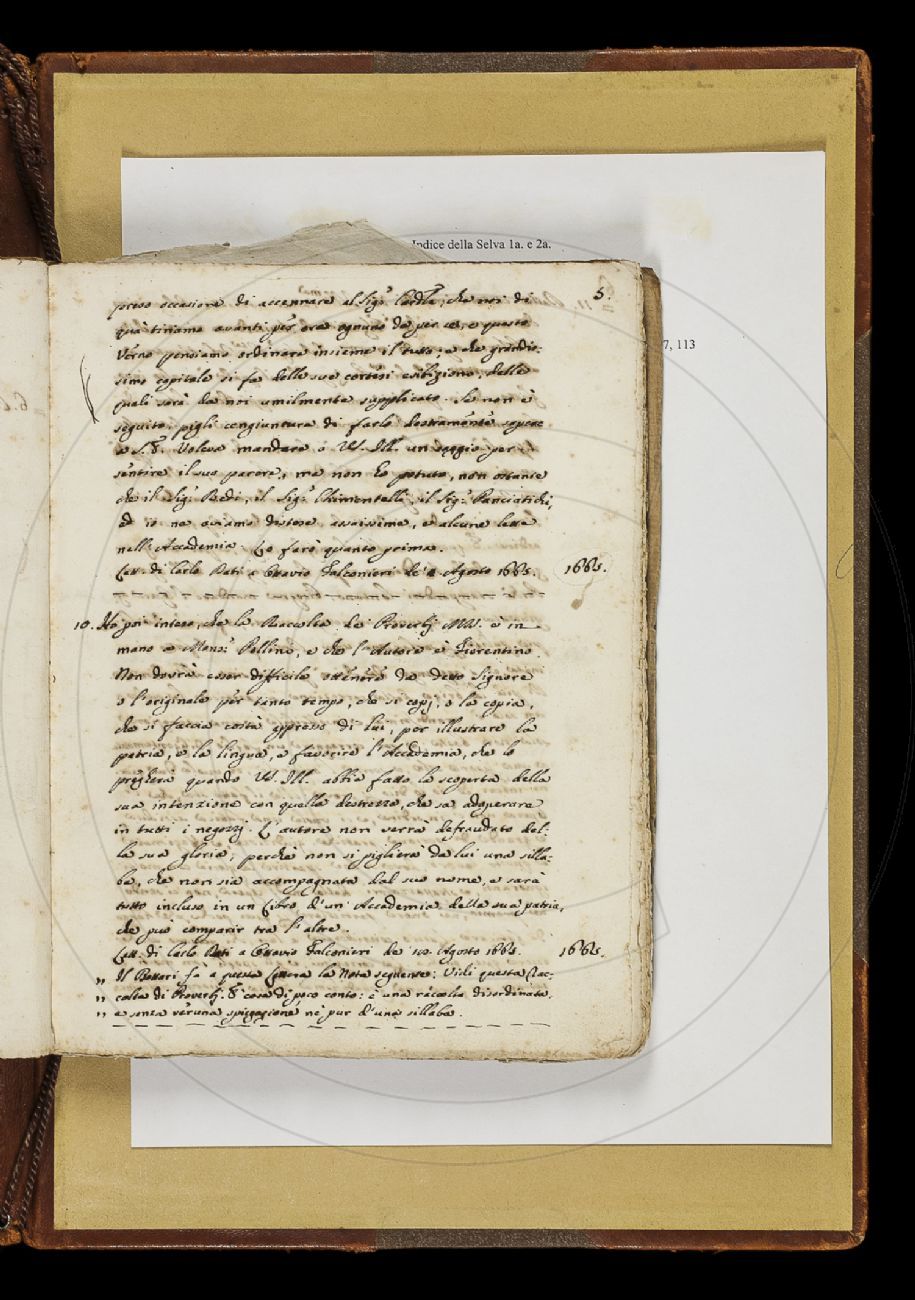 Indice della Selva 1a. e 2a.
7, 113
5.
preso occasione di accennare al Sig.r Cardle, che noi di
qua tiriamo avanti per ora ognuno da per se, e questo
Verno pensiamo ordinare insieme il tutto; e che grandis:
simo capitale si fa delle sue cortesi esibizioni, delle
quali sarà da noi umilmente supplicato. Se non è
seguito, pigli congiuntura di farlo destramente sapere
a S. E. Voleva mandare a V.S. Ill. un saggio per
sentire il suo parere, ma non ho potuto, non ostante
che il Sig.r Redi, il Sig.r Chimentelli, il Sig.r Panciatichi,
ed io ne aviamo distese assaissime, e alcune lette
nell'Accademia. Lo farò quanto prima.
Lett. di Carlo Dati a Ottavio Falconieri de' Agosto 1665.
1665.
10. Ho poi inteso, che la Raccolta de Proverbj MS. è in
mano a Mons.r Rollino, e che l'Autore è Fiorentino.
Non dovrà esser difficile ottenere da detto Signore
o l'originale per tanto tempo, che si copj, o la copia,
che si faccia costà appresso di lui, per illustrare la
patria, e la lingua, e favorire l'Accademia, che lo
pregherà quando V.S. Ill. abbia fatto la scoperta della
sua intenzione con quella destrezza, che sa adoperare
in tutti i negozzj. L'autore non verrà defraudato del:
la sua gloria, perchè non si piglierà da lui una silla:
ba, che non sia accompagnata dal suo nome, e sarà
tutto incluso in un Libro d'un'Accademia della sua patria,
che può comparir tra l'altre.
Lett. di Carlo Dati a Ottavio Falconieri de 10. Agosto 1665.
1665.
„ Il Bottari fa a questa Lettera la Nota seguente: Vidi questa Rac-
„ colta di Proverbj. È cosa di poco conto: è una raccolta disordinata,
„ e senza veruna spiegazione nè pur d'una sillaba.